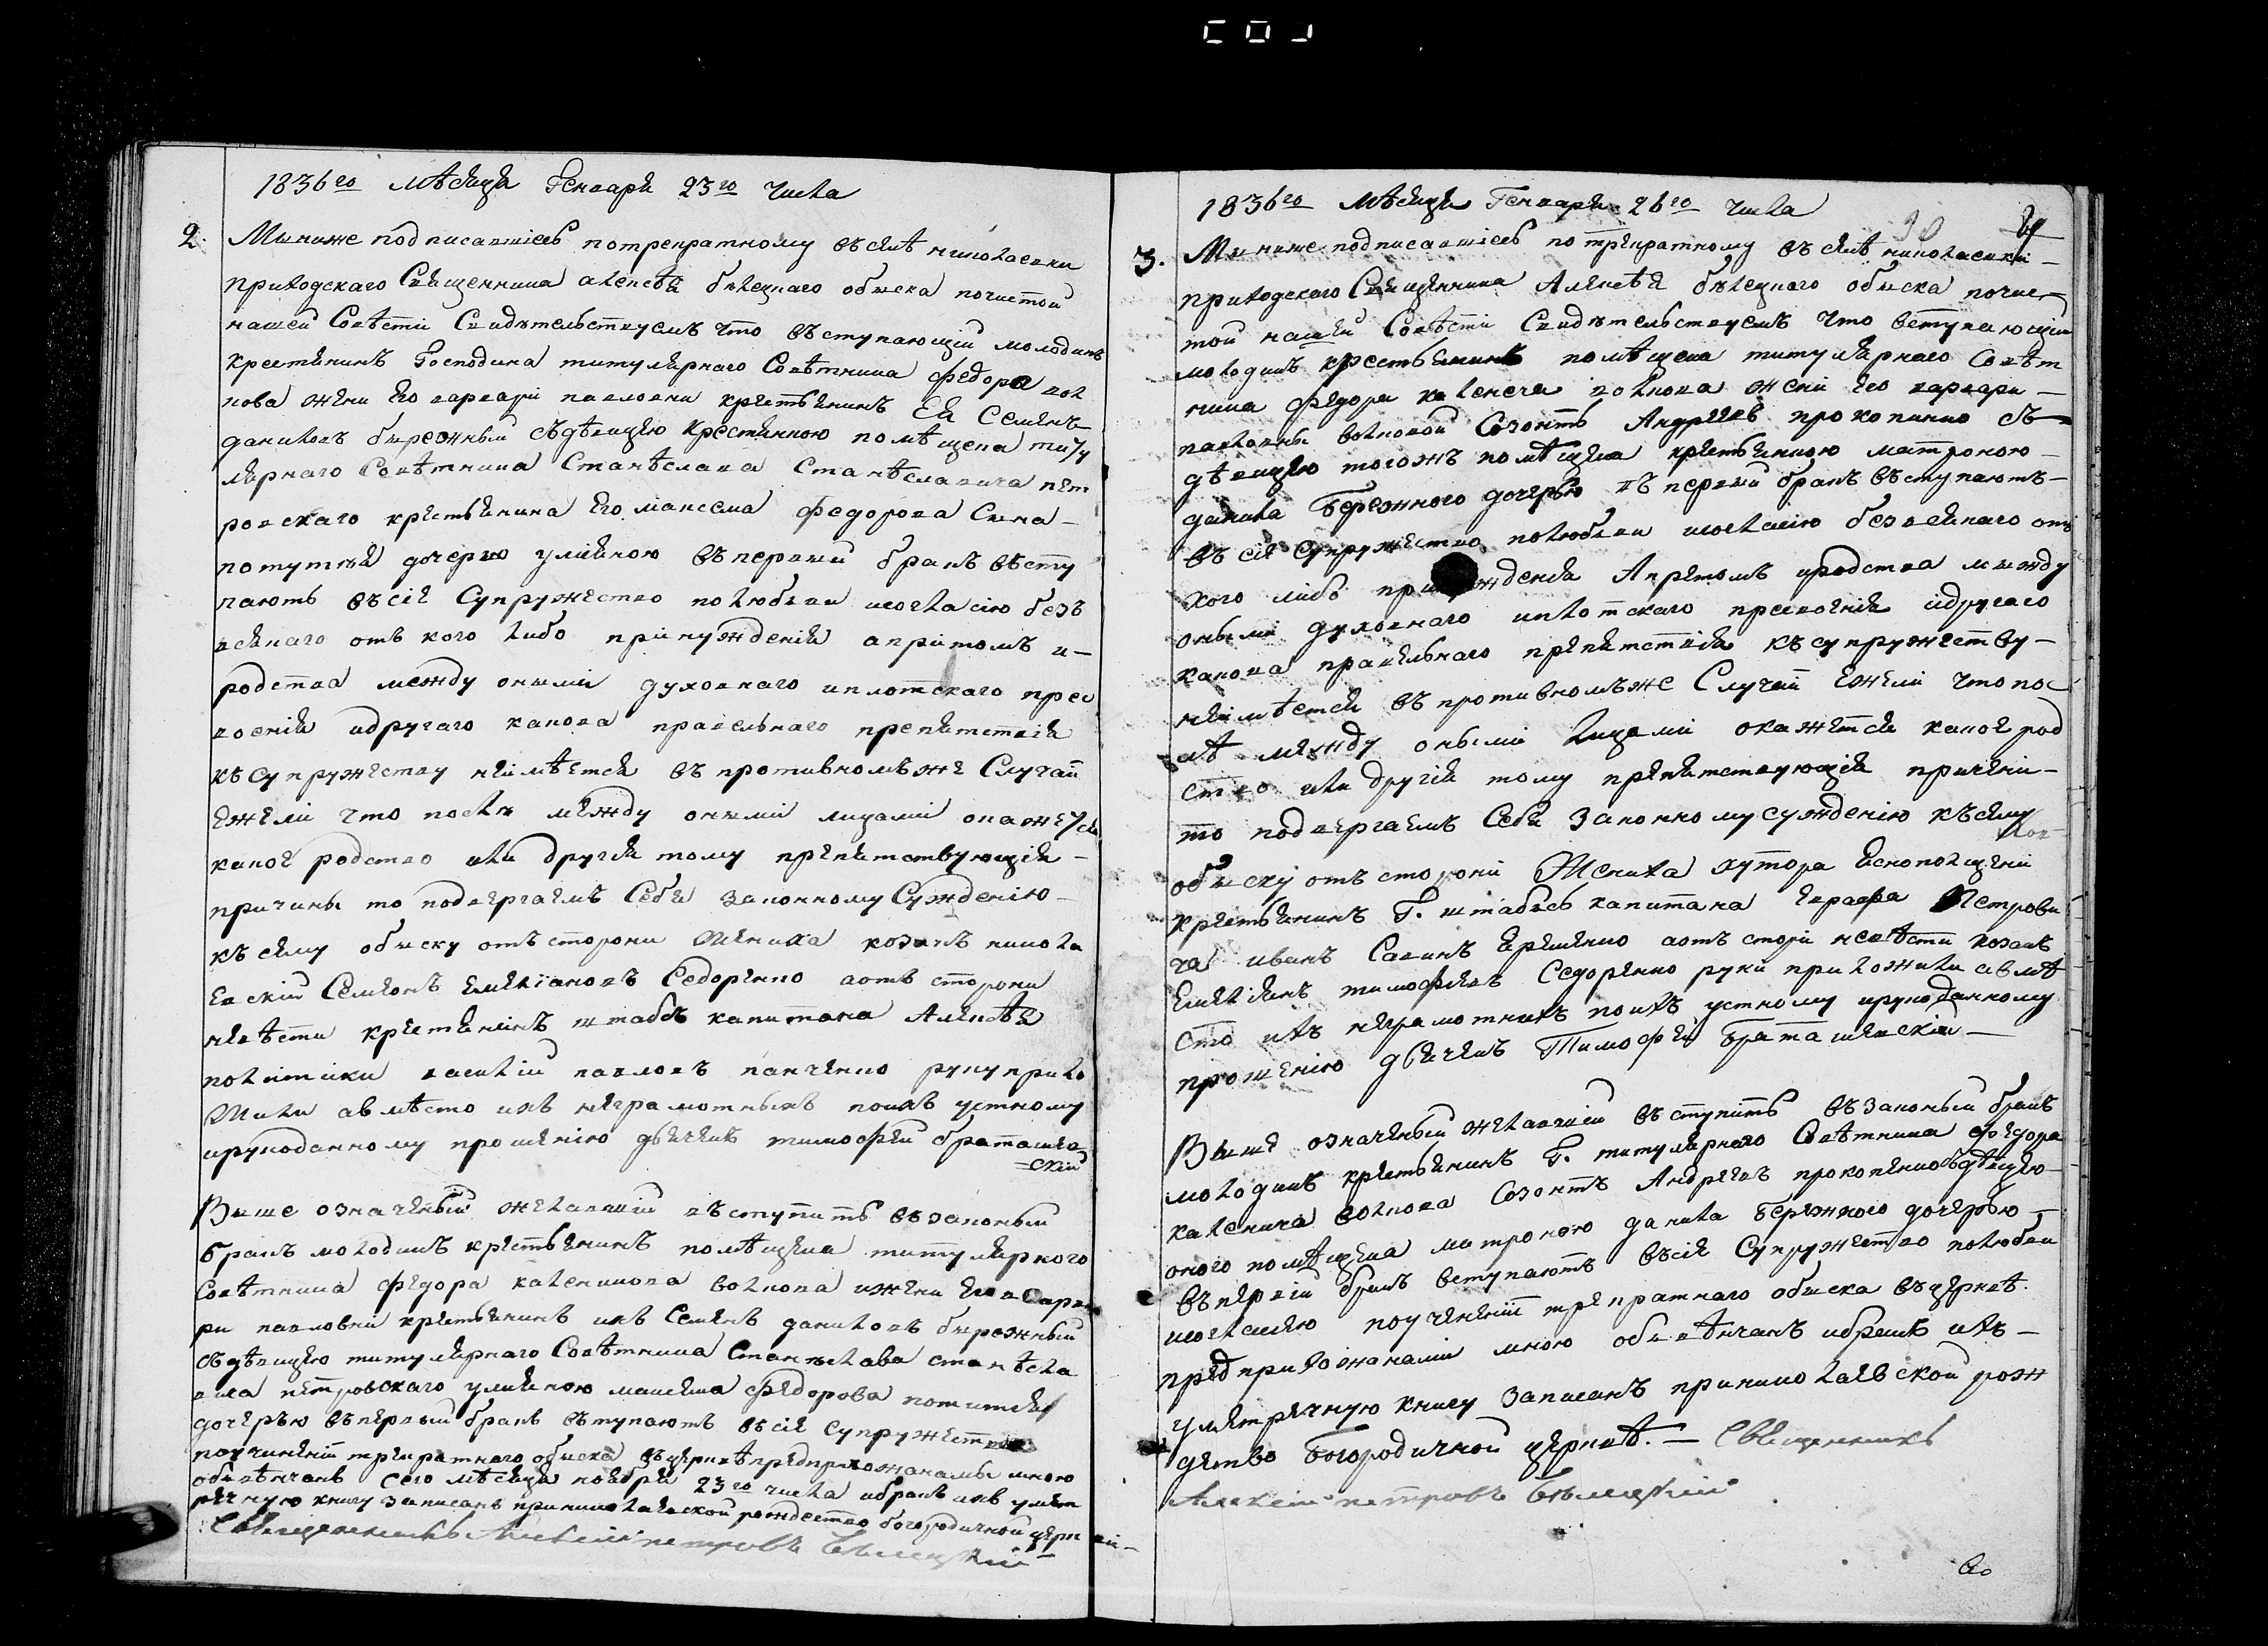 1836го мѣсяця Генваря 23го числа
2. Мы ниже подписавшіесь потрекратному въ селѣ николаевки
приходскаго Священника алексѣя бѣлецкаго обыска почистой
нашей Совѣсти Свидѣтельствуемъ что въступающій молодикъ
крестянинъ Господина титулярнаго Совѣтника федора вол
кова жени его варвари павловни крестьянинъ Ея Семенъ
данила бережный съдѣвицею крестянкою помѣщека титу
лярнаго Совѣтника Станѣслава Станѣславича пет
ровскаго крестьянина Его максема федорова Сына
потуткѣ дочерю уліяною въ первый бракъ въсту
паютъ въ сіе Супружество полюбви исогласію безъ
всякаго отъ кого либо принужденія апритомъ и
родства между оными духовнаго иплотскаго прес
восній идругаго какова правельнаго препятствія
къ Супружеству неимѣется въ противномъ же Случаи
ежели что послѣ между оными лицами окажеться
какое родство или другіе тому препятствующія
причины то подвергаемъ Себя законному Сужденію
къ сему обыску отъ стороны Жениха козакъ никола
евскій Семіонъ емелїановъ Седоренко аотъ стороны
невѣсти крестянинъ штабсъ капитана Алексѣя
политики василій павловъ панченко руку прило
Жили авмѣсто ихъ неграмотныхъ поихъ устному
ирукоданному прошенію дьячекъ тимофей браташев
=скій
Выше означеный желающій въступить въ законый
бракъ молодикъ крестьянинъ помѣщека титулярного
Совѣтника федора каленикова волкова ижени Его варва
ри павловни крестьянинъ ихъ Семенъ даниловъ бережный
съдѣвицею титулярнаго Совѣтника Станѣслава станѣсла
вича петровскаго уліяною максима федорова потитки
дочерью въ первый бракъ въступаютъ въсіе Супружество
поучиненіи трекратнаго обыска въ церквѣ предприхожанамы мною
обвѣнчанъ сего мѣсяця ноября 23го числа ибракъ ихъ умет
речную книгу записанъ приниколаевской рождество богородичной церк
вѣ Священникъ Алексій петровъ Бѣлецкій
1836го мѣсяця Генваря 26го числа
30
3. Мы ниже подписавшіесь по трекратному въ селѣ николаевки
приходского Священника Алексѣя бѣлецкого обыска почис
той нашей Совѣсти Свидѣтельствуемъ что вступающій
молодикъ крестьянинъ помѣщека титулярнаго Совѣт
ника федора каленеча волкова жени его варвари
павловны волковой Созонтъ Андреевъ прокопенко съ
дѣвицею тогожъ помѣщека крестьянкою матроною
данила Бережного дочерью въ первый бракъ въступаютъ
въ сіе Супружество полюбви исогласію безвсякаго отъ
кого либо принужденія Апретомъ иродства между
оными духовнаго иплотскаго пресвоенія идругаго
какова правельнаго препятствія къ супружеству
неимѣется въ противномъ же Случаѣ Ежели что пос
лѣ между оными лицами окажется какое род
ство или другія тому препятствующія причени
то подвергаемъ Себя законному сужденію къ сему
обыску отъ стороні Жениха хутора
крестьянинъ Г. штабсъ капитана Петрови
ча иванъ Савинъ Еременко аотъ сторні невѣсти козакъ
Емеліянъ тимофеевъ Седоренко руки приложили авмѣ
сто ихъ неграмотнихъ поихъ устному ирукоданному
прошенію дьячекъ Тимофѣй браташевскій
Выше означеный желающій въступить въ законый бракъ
молодикъ крестьянинъ Г. титулярнаго Совѣтника федора
каленича волкова Созонтъ Андреевъ прокопенко съдѣвицею
оного помѣщека матроною данила бережного дочерью
въ первій бракъ вступаютъ въсіе Супружество полюбви
исогласию поучененіи трекратнаго обыска въ церквѣ
предприхожанами мною обвѣнчанъ ибракъ ихъ
уметречную книгу записанъ приниколаевской рож
дество богородичной церквѣ. Священникъ
Алексій петровъ Бѣлецкій